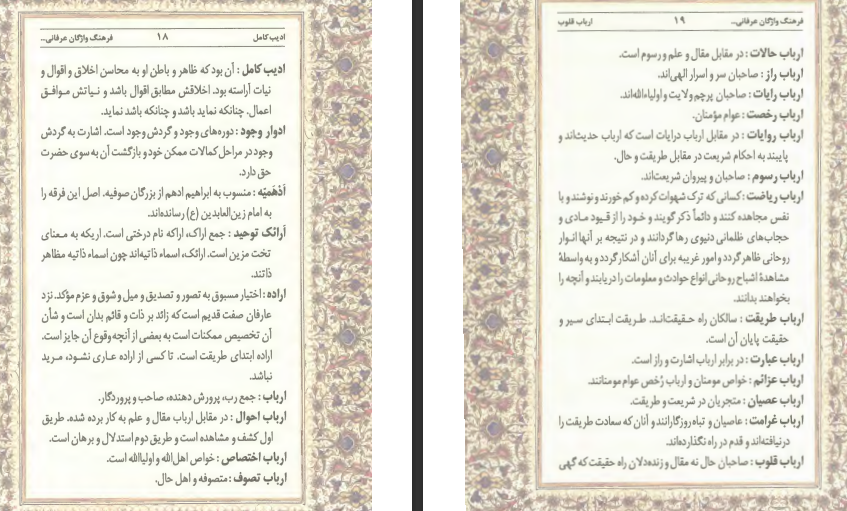 ادیب کامل ۱۸ فرهنگ واژگان عرفانی...
ادیب کامل : آن بود که ظاهر و باطن او به محاسن اخلاق و اقوال و
نیات آراسته بود. اخلاقش مطابق اقوال باشد و نیاتش موافق
اعمال. چنانکه نماید باشد و چنانکه باشد نماید.
ادوار وجود : دوره‌های وجود و گردش وجود است. اشارت به گردش
وجود در مراحل کمالات ممکن خود و بازگشت آن به سوی حضرت
حق دارد.
اَدْهَمیّه : منسوب به ابراهیم ادهم از بزرگان صوفیه. اصل این فرقه را
به امام زین‌العابدین (ع) رسانده‌اند.
اَرائک توحید : جمع اراک، اراکه نام درختی است. اریکه به معنای
تخت مزین است. ارائک، اسماء ذاتیه‌اند چون اسماء ذاتیه مظاهر
ذاتند.
اراده : اختیار مسبوق به تصور و تصدیق و میل و شوق و عزم مؤکد. نزد
عارفان صفت قدیم است که زائد بر ذات و قائم بدان است و شأن
آن تخصیص ممکنات است به بعضی از آنچه وقوع آن جایز است.
اراده ابتدای طریقت است. تا کسی از اراده عاری نشود، مرید
نباشد.
ارباب : جمع رب، پرورش دهنده، صاحب و پروردگار.
ارباب احوال : در مقابل ارباب مقال و علم به کار برده شده. طریق
اول کشف و مشاهده است و طریق دوم استدلال و برهان است.
ارباب اختصاص : خواص اهل‌الله و اولیاالله است.
ارباب تصوف : متصوفه و اهل حال.
فرهنگ واژگان عرفانی... ۱۹ ارباب قلوب
ارباب حالات : در مقابل مقال و علم و رسوم است.
ارباب راز : صاحبان سر و اسرار الهی‌اند.
ارباب رایات : صاحبان پرچم ولایت و اولیاءالله‌اند.
ارباب رخصت : عوام مؤمنان.
ارباب روایات : در مقابل ارباب درایات است که ارباب حدیث‌اند و
پایبند به احکام شریعت در مقابل طریقت و حال.
ارباب رسوم : صاحبان و پیروان شریعت‌اند.
ارباب ریاضت : کسانی که ترک شهوات کرده و کم خورند و نوشند و با
نفس مجاهده کنند و دائماً ذکر گویند و خود را از قیود مادی و
حجاب‌های ظلمانی دنیوی رها گردانند و در نتیجه بر آنها انوار
روحانی ظاهر گردد و امور غریبه برای آنان آشکار گردد و به واسطهٔ
مشاهدهٔ اشباح روحانی انواع حوادث و معلومات را دریابند و آنچه را
بخواهند بدانند.
ارباب طریقت : سالکان راه حقیقت‌اند. طریقت ابتدای سیر و
حقیقت پایان آن است.
ارباب عبارت : در برابر ارباب اشارت و راز است.
ارباب عزائم : خواص مومنان و ارباب رُخَص عوام مومنانند.
ارباب عصیان : متجریان در شریعت و طریقت.
ارباب غرامت : عاصیان و تباه روزگارانند و آنان که سعادت طریقت را
درنیافته‌اند و قدم در راه نگذارده‌اند.
ارباب قلوب : صاحبان حال نه مقال و زنده‌دلان راه حقیقت که گهی